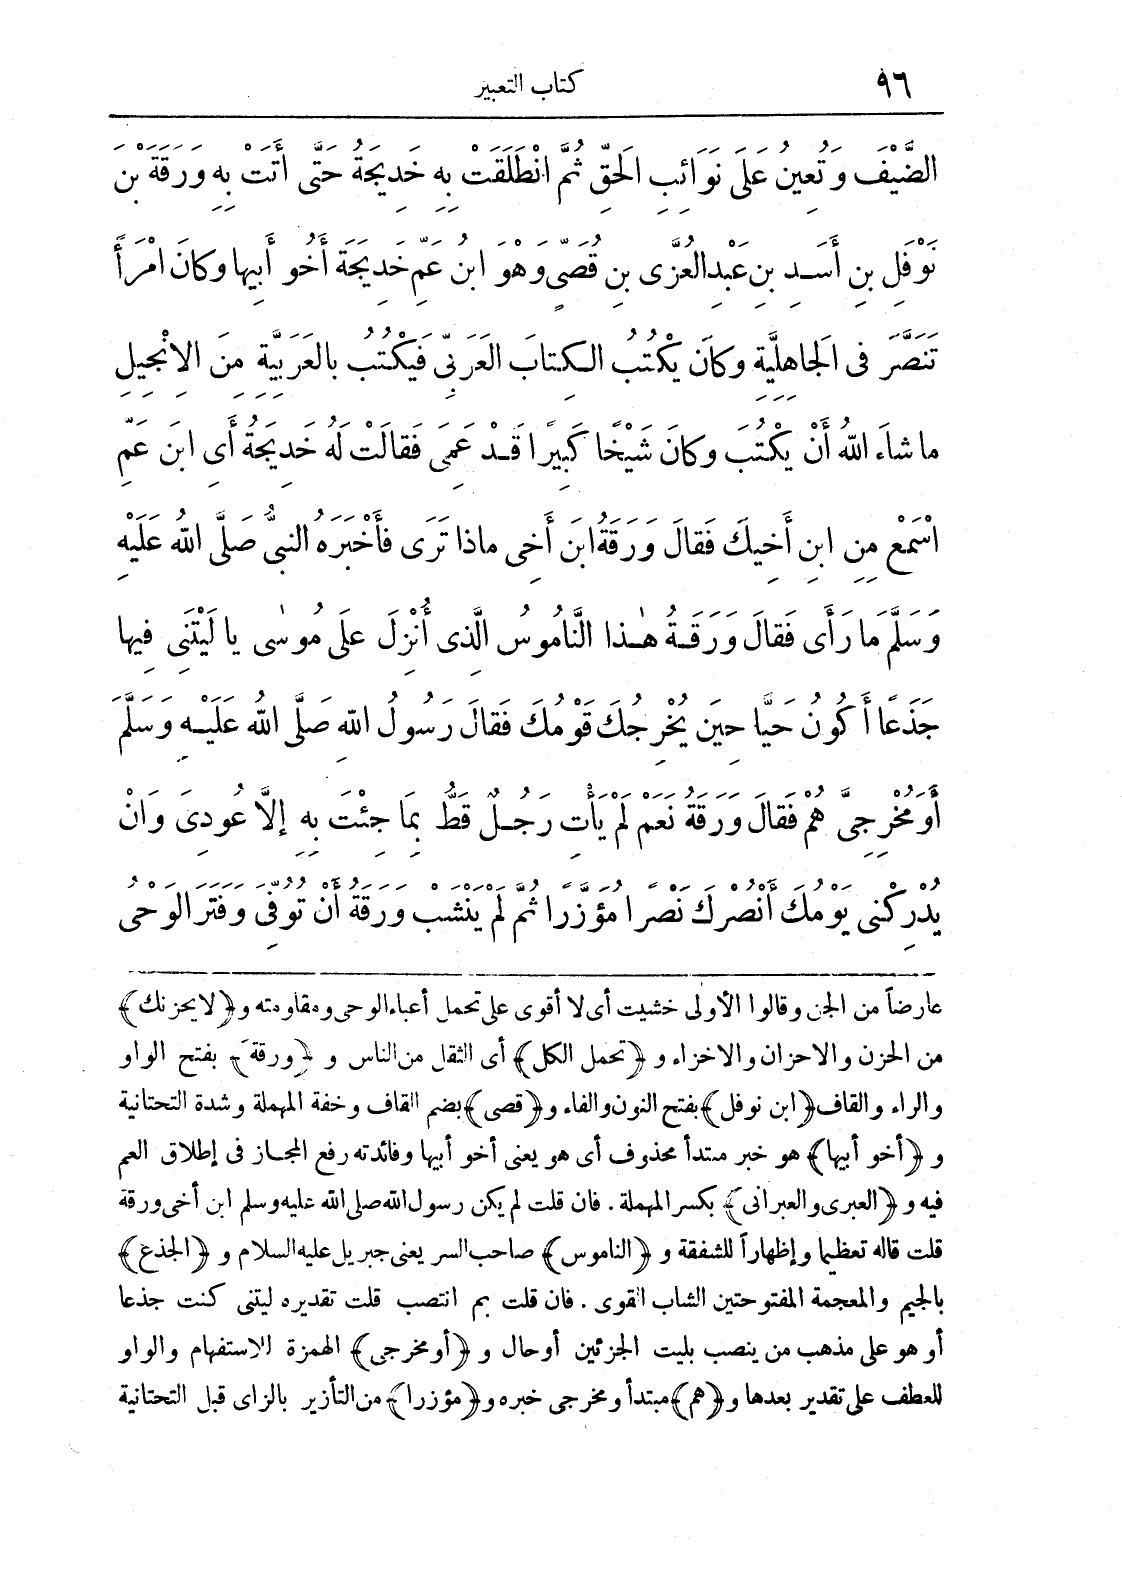 ٩٦
كتاب التعبير
الضَّيْفَ وَتُعِينُ عَلَى نَوَائِبِ الْحَقِّ ثُمَّ انْطَلَقَتْ بِهِ خَدِيجَةُ حَتَّى أَتَتْ بِهِ وَرَقَةَ بْنَ
نَوْفَلِ بْنِ أَسَدِ بْنِ عَبْدِ الْعُزَّى بْنِ قُصَيٍّ وَهْوَ ابْنُ عَمِّ خَدِيجَةَ أَخُو أَبِيهَا وَكَانَ امْرَأً
تَنَصَّرَ فِى الْجَاهِلِيَّةِ وَكَانَ يَكْتُبُ الْكِتَابَ الْعَرَبِيَّ فَيَكْتُبُ بِالْعَرَبِيَّةِ مِنَ الاِنْجِيلِ
مَا شَاءَ اللهُ أَنْ يَكْتُبَ وَكَانَ شَيْخًا كَبِيرًا قَدْ عَمِيَ فَقَالَتْ لَهُ خَدِيجَةُ أَىِ ابْنَ عَمِّ
اسْمَعْ مِنِ ابْنِ أَخِيكَ فَقَالَ وَرَقَةُ ابْنَ أَخِى مَاذَا تَرَى فَأَخْبَرَهُ النَّبِىُّ صَلَّى اللهُ عَلَيْهِ
وَسَلَّمَ مَا رَأَى فَقَالَ وَرَقَةُ هٰذَا النَّامُوسُ الَّذِى أُنْزِلَ عَلَى مُوسٰى يَا لَيْتَنِى فِيهَا
جَذَعًا أَكُونُ حَيًّا حِينَ يُخْرِجُكَ قَوْمُكَ فَقَالَ رَسُولُ اللهِ صَلَّى اللهُ عَلَيْهِ وَسَلَّمَ
أَوَ مُخْرِجِيَّ هُمْ فَقَالَ وَرَقَةُ نَعَمْ لَمْ يَأْتِ رَجُلٌ قَطُّ بِمَا جِئْتَ بِهِ إِلَّا عُودِىَ وَانْ
يُدْرِكْنِى يَوْمُكَ أَنْصُرْكَ نَصْرًا مُؤَزَّرًا ثُمَّ لَمْ يَنْشَبْ وَرَقَةُ أَنْ تُوُفِّىَ وَفَتَرَ الْوَحْى
عارضاً من الجن وقالوا الأولى خشيت أى لا أقوى على تحمل أعباء الوحى ومقاومته و﴿لا يحزنك﴾
من الحزن والاحزان والاخزاء و ﴿تحمل الكل﴾ أى الثقل من الناس و ﴿ورقة﴾ بفتح الواو
والراء والقاف ﴿ابن نوفل﴾ بفتح النون والفاء و﴿قصى﴾ بضم القاف وخفة المهملة وشدة التحتانية
و ﴿أخو أبيها﴾ هو خبر مبتدأ محذوف أى هو يعنى أخو أبيها وفائدته رفع المجاز فى إطلاق العم
فيه و ﴿العبرى والعبرانى﴾ بكسر المهملة . فان قلت لم يكن رسول الله صلى الله عليه وسلم ابن أخى ورقة
قلت قاله تعظيما وإظهاراً للشفقة و ﴿الناموس﴾ صاحب السر يعنى جبريل عليه السلام و ﴿الجذع﴾
بالجيم والمعجمة المفتوحتين الشاب القوى . فان قلت بم انتصب قلت تقديره ليتنى كنت جذعا
أو هو على مذهب من ينصب بليت الجزئين أو حال و ﴿أو مخرجى﴾ الهمزة للاستفهام والواو
للعطف على تقدير بعدها و ﴿هم﴾ مبتدأ ومخرجى خبره و﴿مؤزرا﴾ من التأزير بالزاى قبل التحتانية